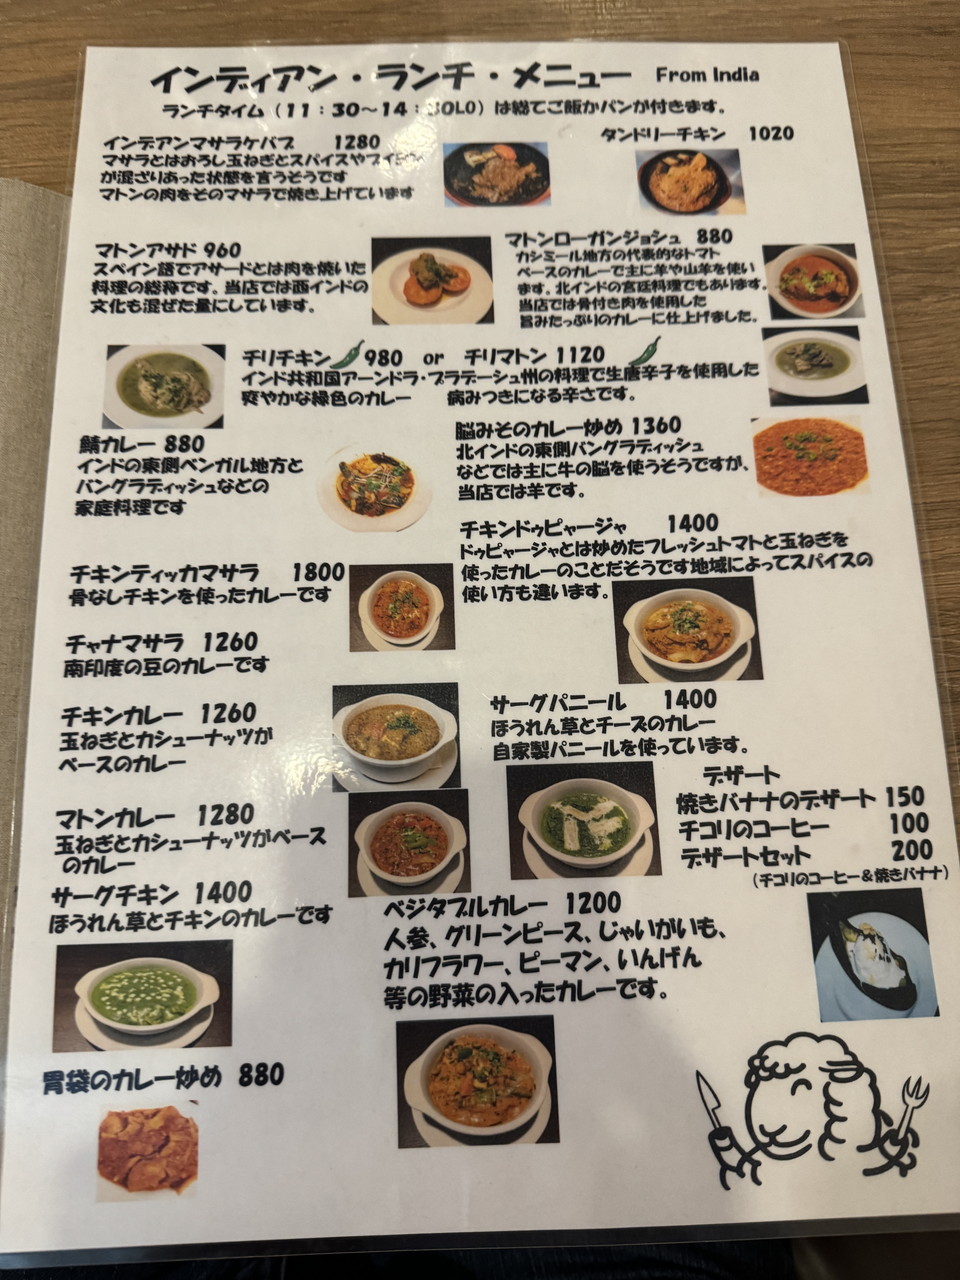 インディアン・ランチ・メニュー From India
ランチタイム（11：30～14：30LO）は総てご飯かパンが付きます。
インデアンマサラケバブ 1280
マサラとはおろし玉ねぎとスパイスやブイヨン
が混ざりあった状態を言うそうです
マトンの肉をそのマサラで焼き上げています
タンドリーチキン 1020
マトンアサド 960
スペイン語でアサードとは肉を焼いた
料理の総称です。当店では西インドの
文化も混ぜた量にしています。
マトンローガンジョシュ 880
カシミール地方の代表的なトマト
ベースのカレーで主に羊や山羊を使い
ます。北インドの宮廷料理でもあります。
当店では骨付き肉を使用した
旨みたっぷりのカレーに仕上げました。
チリチキン 980 or チリマトン 1120
インド共和国アーンドラ・プラデーシュ州の料理で生唐辛子を使用した
爽やかな緑色のカレー 病みつきになる辛さです。
鯖カレー 880
インドの東側ベンガル地方と
バングラディッシュなどの
家庭料理です
脳みそのカレー炒め 1360
北インドの東側バングラディッシュ
などでは主に牛の脳を使うそうですが、
当店では羊です。
チキンドゥピャージャ 1400
ドゥピャージャとは炒めたフレッシュトマトと玉ねぎを
使ったカレーのことだそうです地域によってスパイスの
使い方も違います。
チキンティッカマサラ 1800
骨なしチキンを使ったカレーです
チャナマサラ 1260
南印度の豆のカレーです
チキンカレー 1260
玉ねぎとカシューナッツが
ベースのカレー
サーグパニール 1400
ほうれん草とチーズのカレー
自家製パニールを使っています。
マトンカレー 1280
玉ねぎとカシューナッツがベース
のカレー
デザート
焼きバナナのデザート 150
チコリのコーヒー 100
デザートセット 200
（チコリのコーヒー＆焼きバナナ）
サーグチキン 1400
ほうれん草とチキンのカレーです
ベジタブルカレー 1200
人参、グリーンピース、じゃいがいも、
カリフラワー、ピーマン、いんげん
等の野菜の入ったカレーです。
胃袋のカレー炒め 880